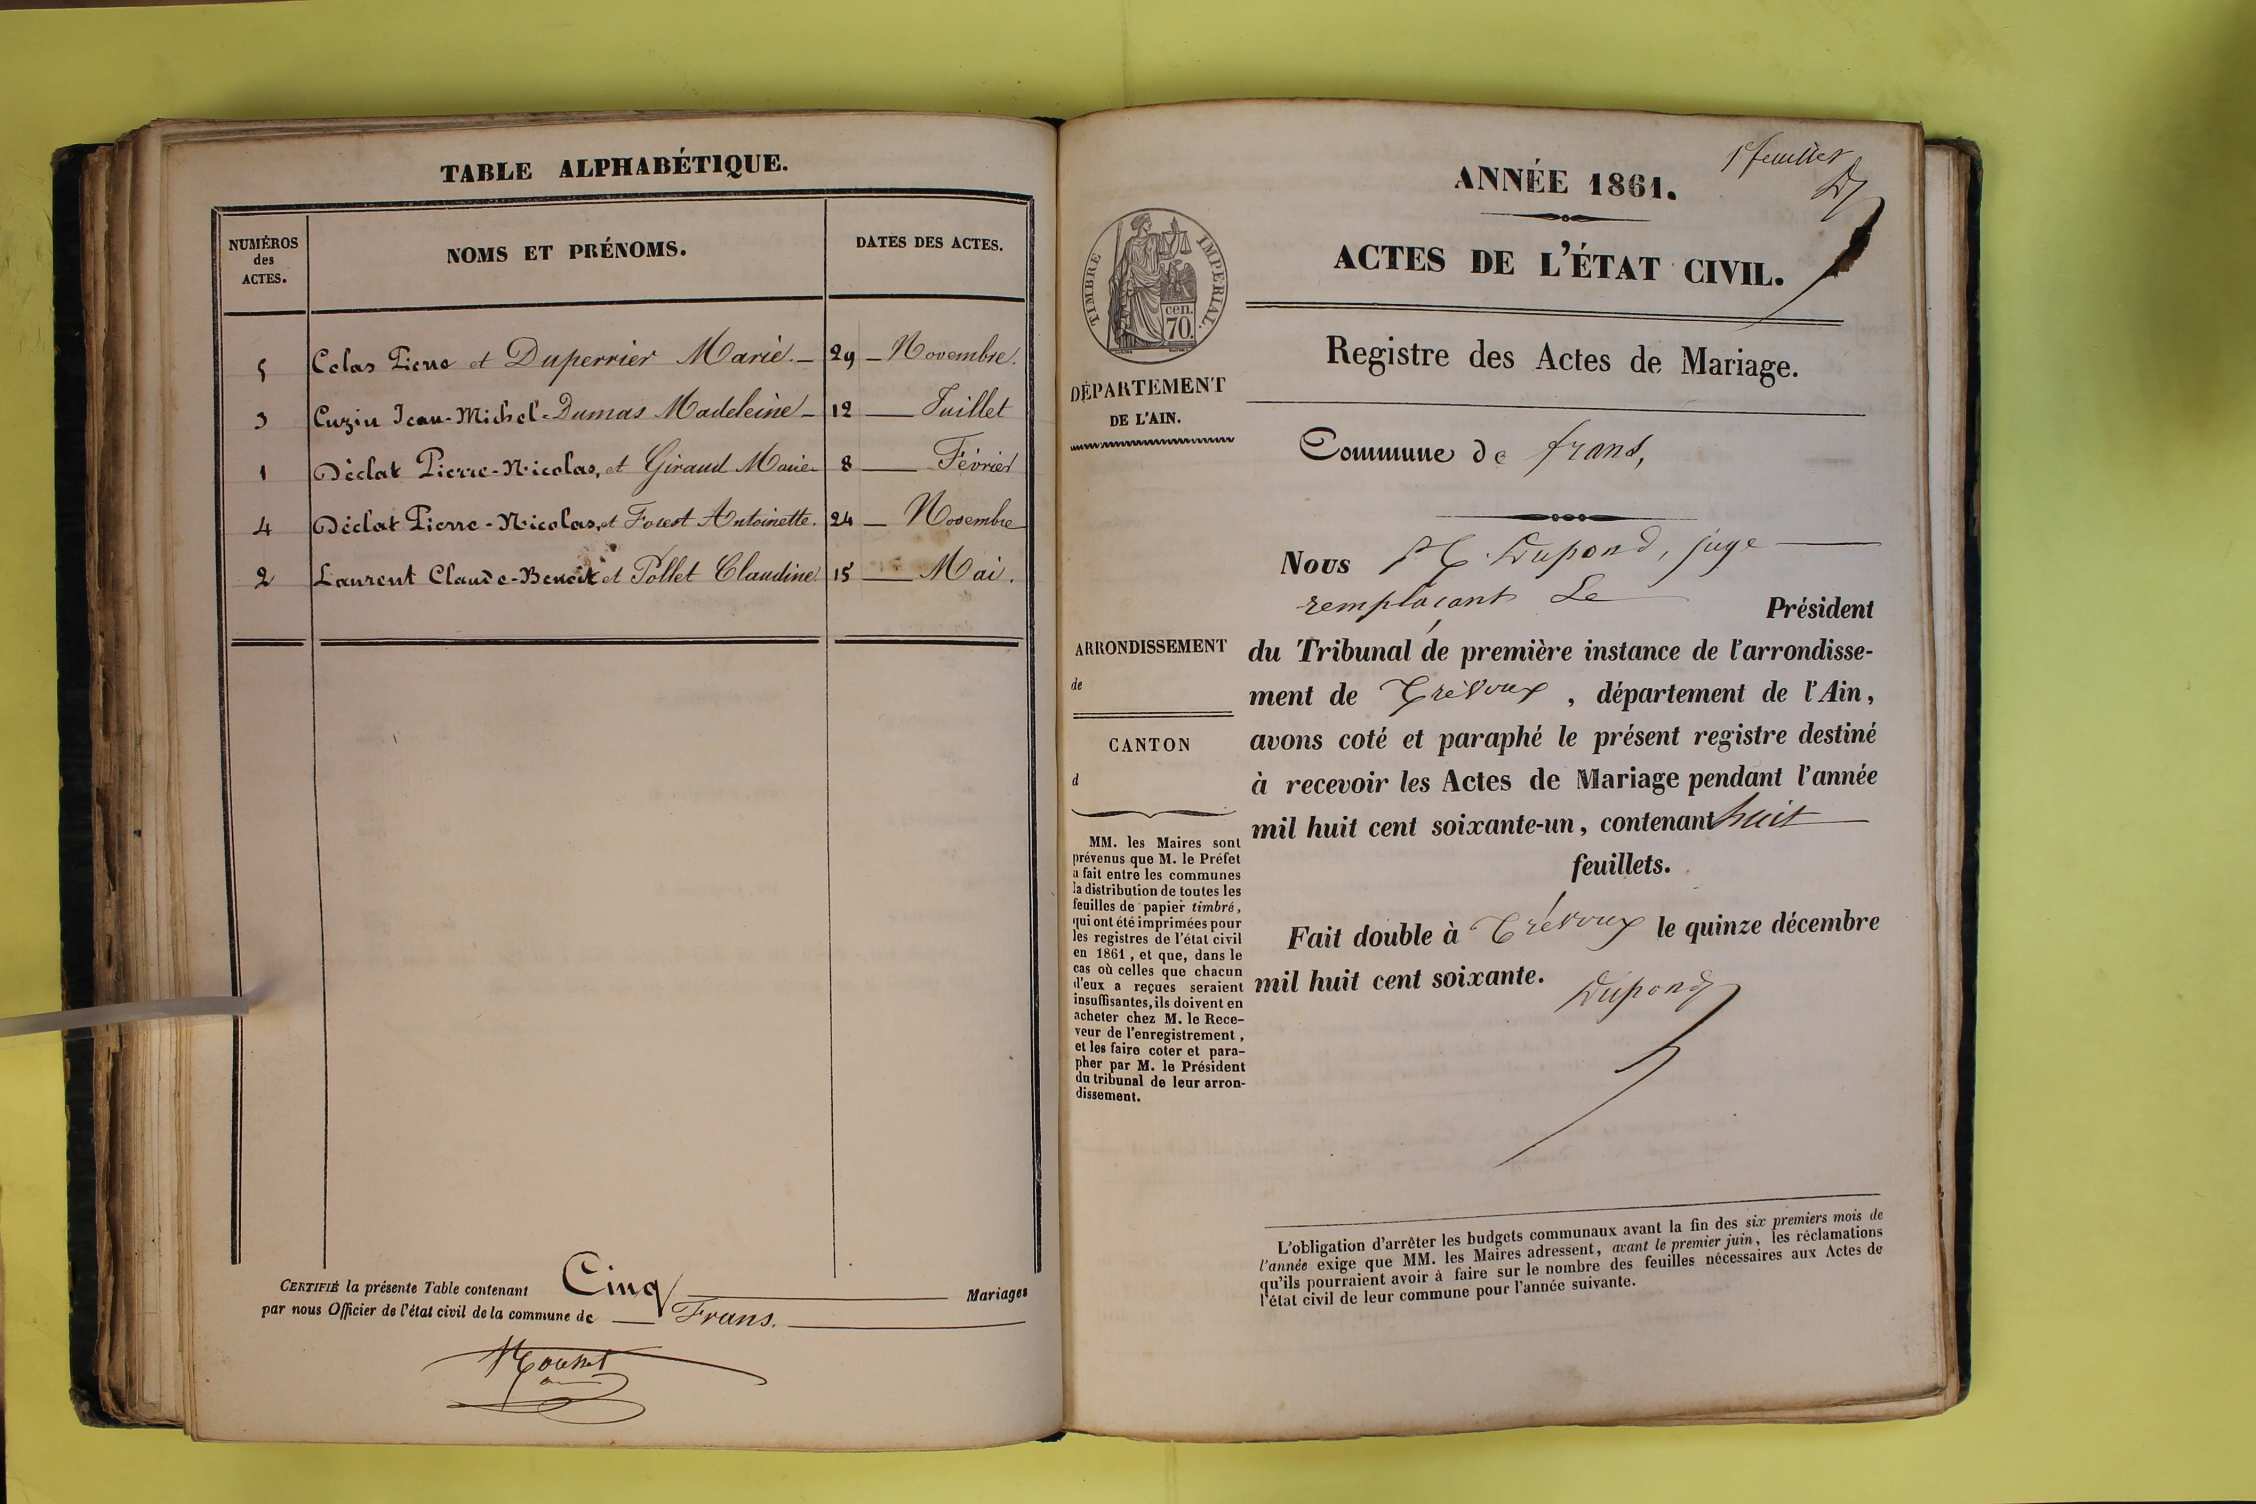 TABLE ALPHABÉTIQUE.
NUMÉROS
des
ACTES.
NOMS ET PRÉNOMS.
DATES DES ACTES.
5 Colas Pierre et Duperrier Marie. 29 Novembre.
3 Cuzin Jean-Michel-Dumas Madeleine 12 Juillet
1 Déclat Pierre-Nicolas, et Giraud Marie 8 Février
4 Déclat Pierre-Nicolas, et Forest Antoinette. 24 Novembre
2 Laurent Claude-Benoit et Pollet Claudine 15 Mai.
CERTIFIÉ la présente Table contenant Cinq Mariages
par nous Officier de l'état civil de la commune de Frans.
1er feuillet
ANNÉE 1861.
TIMBRE IMPERIAL.
cen.
70
ACTES DE L'ÉTAT CIVIL.
Registre des Actes de Mariage.
DÉPARTEMENT
DE L'AIN.
Commune de frans,
Nous Dupond, juge
remplaçant Le Président
du Tribunal de première instance de l'arrondisse-
ment de Trévoux, département de l'Ain,
avons coté et paraphé le présent registre destiné
à recevoir les Actes de Mariage pendant l'année
mil huit cent soixante-un, contenant huit
feuillets.
Fait double à Trévoux le quinze décembre
mil huit cent soixante.
Dupond
ARRONDISSEMENT
de
CANTON
d
MM. les Maires sont
prévenus que M. le Préfet
a fait entre les communes
la distribution de toutes les
feuilles de papier timbré,
qui ont été imprimées pour
les registres de l'état civil
en 1861, et que, dans le
cas où celles que chacun
d'eux a reçues seraient
insuffisantes, ils doivent en
acheter chez M. le Rece-
veur de l'enregistrement,
et les faire coter et para-
pher par M. le Président
du tribunal de leur arron-
dissement.
L'obligation d'arrêter les budgets communaux avant la fin des six premiers mois de
l'année exige que MM. les Maires adressent, avant le premier juin, les réclamations
qu'ils pourraient avoir à faire sur le nombre des feuilles nécessaires aux Actes de
l'état civil de leur commune pour l'année suivante.